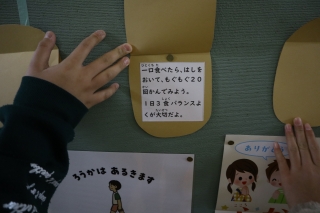 一口食べたら、はしを
おいて、もぐもぐ20
回かんでみよう。
1日3食バランスよ
くが大切だよ。
ろうかは あるきます
ありが